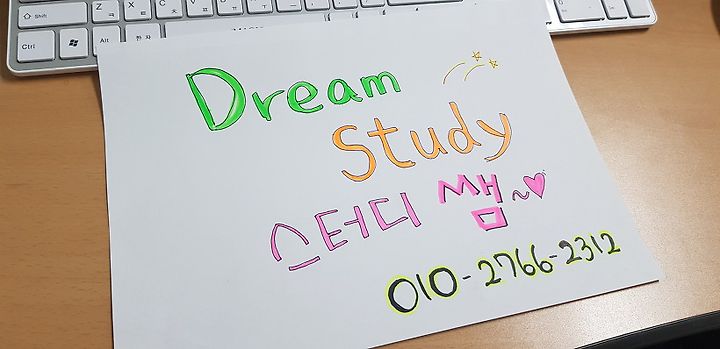 Shift
Z
X
C
Ctrl
Alt
한자
Dream
Study
스터디 쌤~♡
010-2766-2312